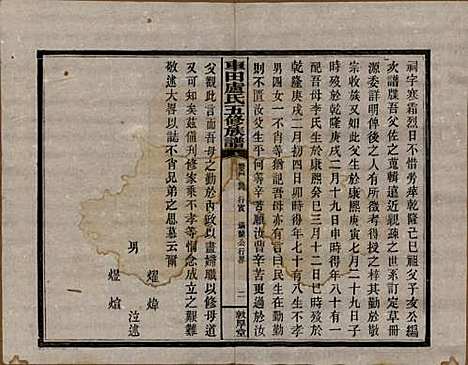 祠宇寒霜烈日不憚劬勞乾隆己巳赐父子亥公編
次譜牒吾父佐之蒐輯遠近親疎之世系訂定草冊
源委詳明俾後之人有所徴考得以遞承于梓其勤於敬
宗收族又如此父生於康熙庚寅七月二十九日子
時歿於乾隆庚戌二月十九日申時得年八十有一
配吾母李氏生於康熙癸巳三月十二日巳時歿於
乾隆庚戌二月初四日卯時得年七十有八生不孝
男四女二不肖等猶記吾母亦有言曰民生在勤勤
則不匱汝父生平何等辛苦願汝曹辛苦更過於汝
車田盧氏五修族譜
行實
二
敦厚堂
父觀此言而吾母之勤於内政以盡婦職以修母道
又可知矣茲備列之不肖兄弟等時念成立之艱難
敬述大畧以誌不肖兄弟之思慕云爾
男
燿煒
煜熺
泣述